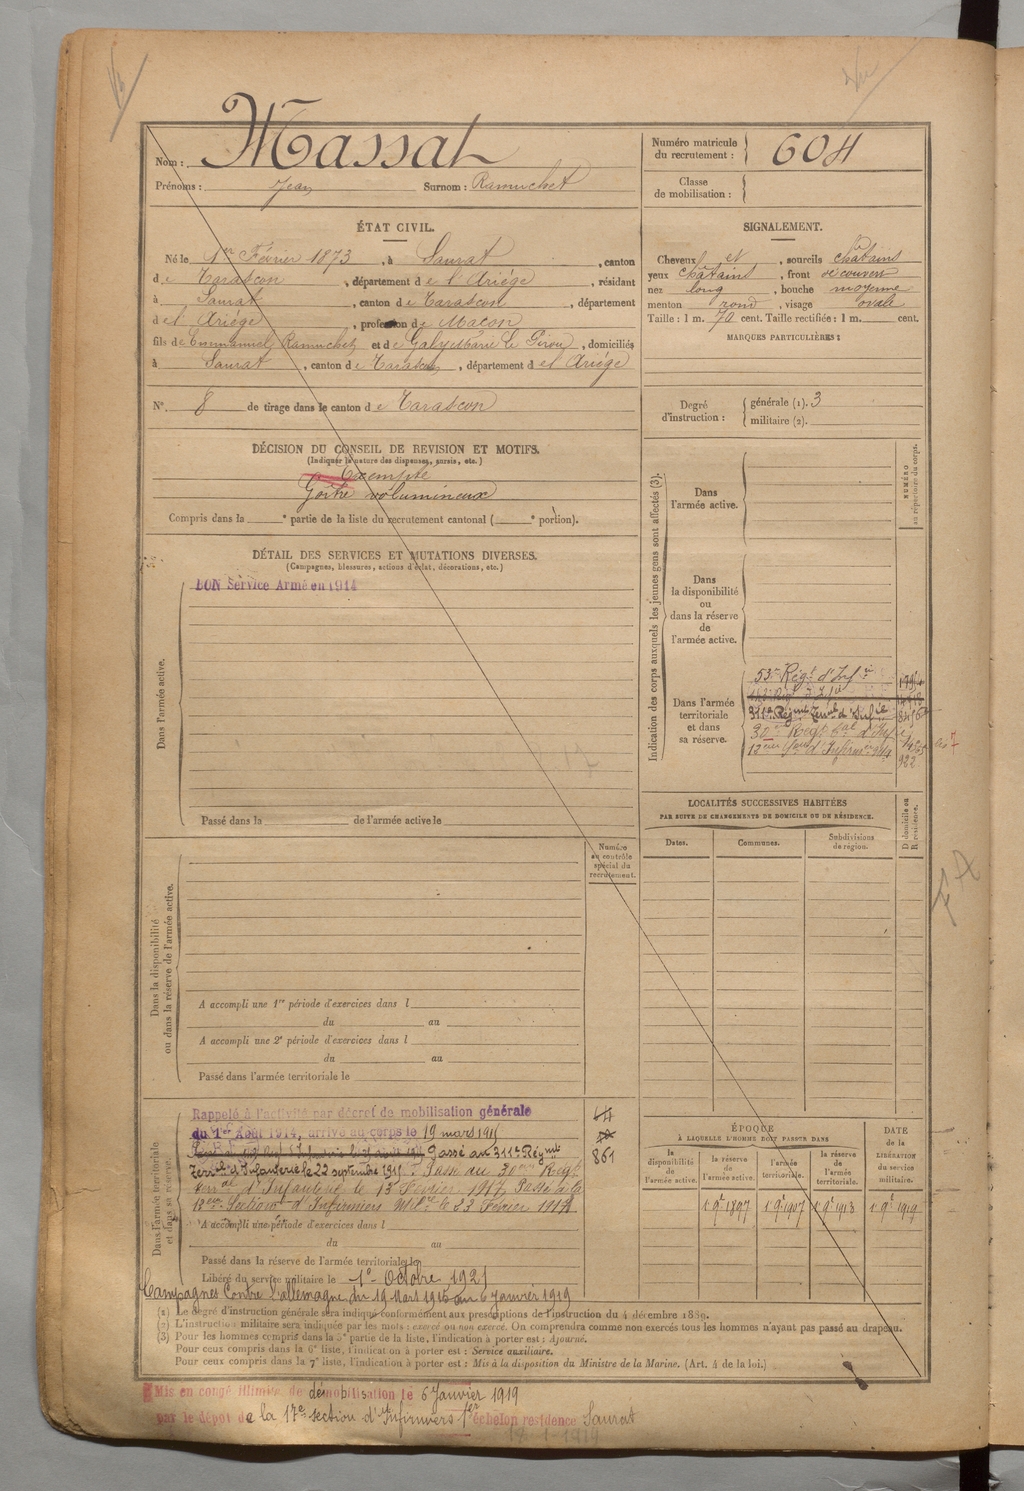 Nom : Massat
Prénoms : Jean Surnom : Ramuchet
Numéro matricule du recrutement : 604
Classe de mobilisation :
ÉTAT CIVIL.
Né le 1er Février 1873, à Saurat, canton
de Tarascon, département de l'Ariège, résidant
à Saurat, canton de Tarascon, département
de l'Ariège, profession de Maçon
fils de Emmanuel Ramuchet et de Galy Marie Le Girou, domiciliés
à Saurat, canton de Tarascon, département de l'Ariège
N° 8 de tirage dans le canton de Tarascon
SIGNALEMENT.
Cheveux et, sourcils châtains
yeux châtains, front découvert
nez long, bouche moyenne
menton rond, visage ovale
Taille : 1 m. 70 cent. Taille rectifiée : 1 m. cent.
MARQUES PARTICULIÈRES :
Degré d'instruction : générale (1). 3
militaire (2).
DÉCISION DU CONSEIL DE REVISION ET MOTIFS.
(Indiquer la nature des dispenses, sursis, etc.)
Exempté
Goitre volumineux
Compris dans la e partie de la liste du recrutement cantonal ( e portion).
DÉTAIL DES SERVICES ET MUTATIONS DIVERSES.
(Campagnes, blessures, actions d'éclat, décorations, etc.)
Dans l'armée active.
BON Service Armé en 1914
Passé dans la de l'armée active le
Indication des corps auxquels les jeunes gens sont affectés (3).
NUMÉRO au répertoire du corps.
Dans l'armée active.
Dans la disponibilité ou dans la réserve de l'armée active.
Dans l'armée territoriale et dans sa réserve.
53e Régt d'Infie
311e Régmt Terrial d'Infie
30me Regt tal d'Infie
922
LOCALITÉS SUCCESSIVES HABITÉES
PAR SUITE DE CHANGEMENTS DE DOMICILE OU DE RÉSIDENCE.
Dates. Communes. Subdivisions de région. D domicile ou R résidence.
FA
Dans la disponibilité ou dans la réserve de l'armée active.
Numéro au contrôle spécial du recrutement.
A accompli une 1re période d'exercices dans l
du au
A accompli une 2e période d'exercices dans l
du au
Passé dans l'armée territoriale le
Dans l'armée territoriale et dans sa réserve.
Rappelé à l'activité par décret de mobilisation générale
du 1er Août 1914, arrivé au corps le 19 mars 1915
Passé au 311e Régmt
Terrial d'Infanterie le 22 septembre 1915. Passé au 30me Regt
terrial d'Infanterie le 13 Février 1917, Passé à la
Section d'Infirmiers Mres le 23 Février 1917
861
A accompli une période d'exercices dans l
du au
Passé dans la réserve de l'armée territoriale le
Libéré du service militaire le 1er Octobre 1921
Campagnes Contre l'allemagne du 19 Mars 1915 au 6 janvier 1919
ÉPOQUE
À LAQUELLE L'HOMME DOIT PASSER DANS
la disponibilité de l'armée active. la réserve de l'armée active. l'armée territoriale. la réserve de l'armée territoriale.
DATE de la LIBÉRATION du service militaire.
1 9e 1897 1 9e 1907 1 9e 1913 1 9e 1919
(1) Le degré d'instruction générale sera indiqué conformément aux prescriptions de l'instruction du 4 décembre 1889.
(2) L'instruction militaire sera indiquée par les mots : exercé ou non exercé. On comprendra comme non exercés tous les hommes n'ayant pas passé au drapeau.
(3) Pour les hommes compris dans la 5e partie de la liste, l'indication à porter est : Ajourné.
Pour ceux compris dans la 6e liste, l'indication à porter est : Service auxiliaire.
Pour ceux compris dans la 7e liste, l'indication à porter est : Mis à la disposition du Ministre de la Marine. (Art. 4 de la loi.)
Mis en congé illimité de démobilisation le 6 Janvier 1919
par le dépôt de la 17e section d'Infirmiers 1er échelon residence Saurat